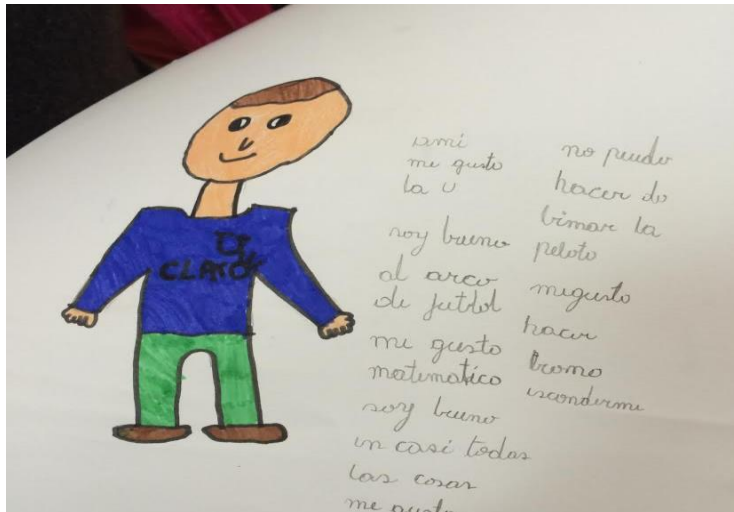 CLARO
ami
me gusto
la U
soy bueno
al arco
de futbol
me gusto
matematico
soy bueno
en casi todas
las cosas
me gusto
no puedo
hacer do
bimar la
peloto
megusto
hacer
bromo
esconderme